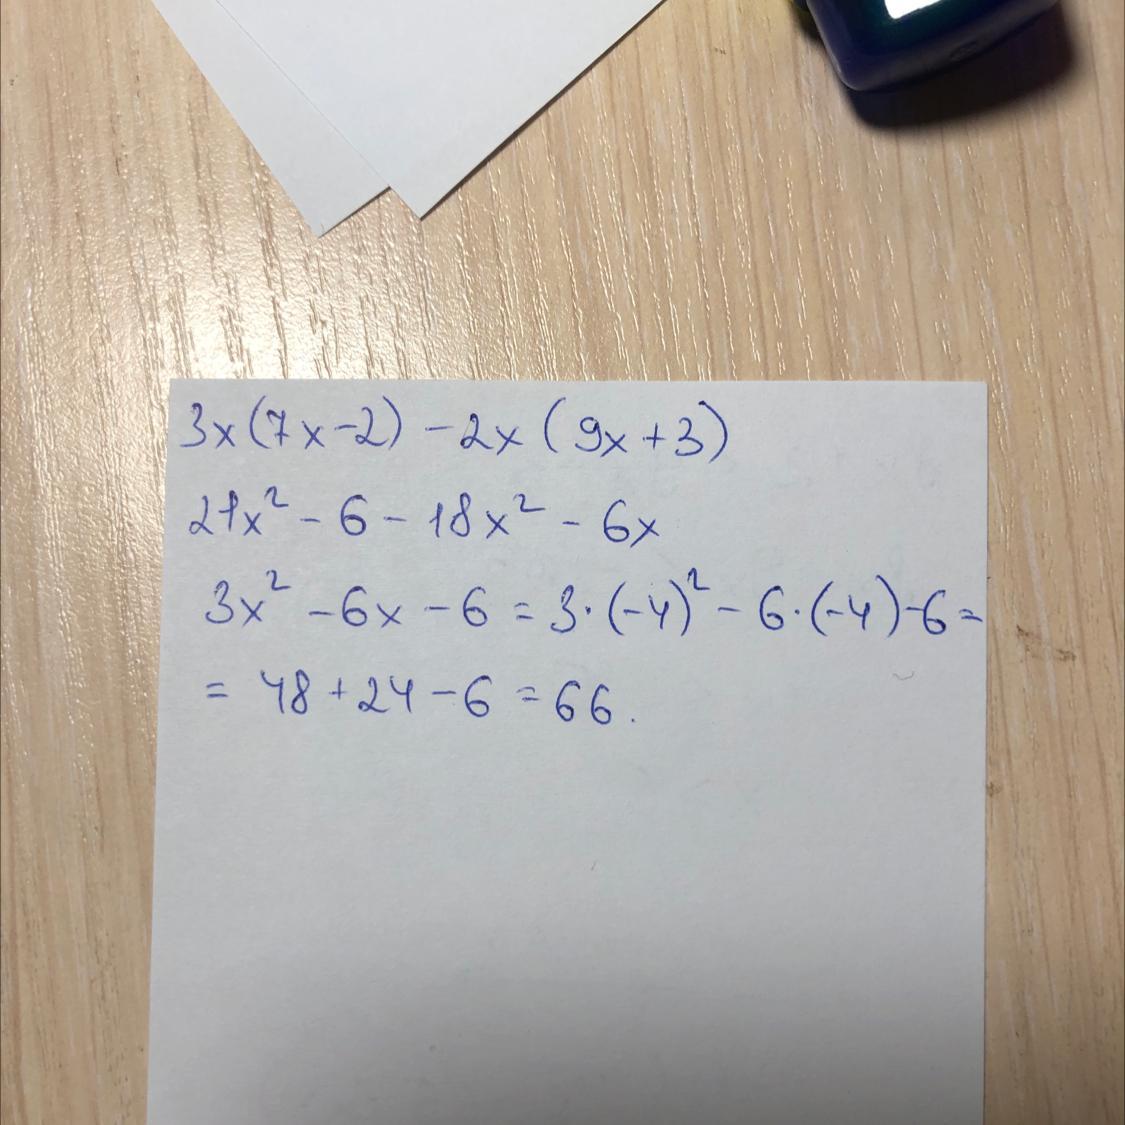 3x(7x-2) -2x (9x+3)
21x² - 6 - 18x² - 6x
3x² - 6x - 6 = 3·(-4)² - 6·(-4)-6=
= 48+24-6 = 66.